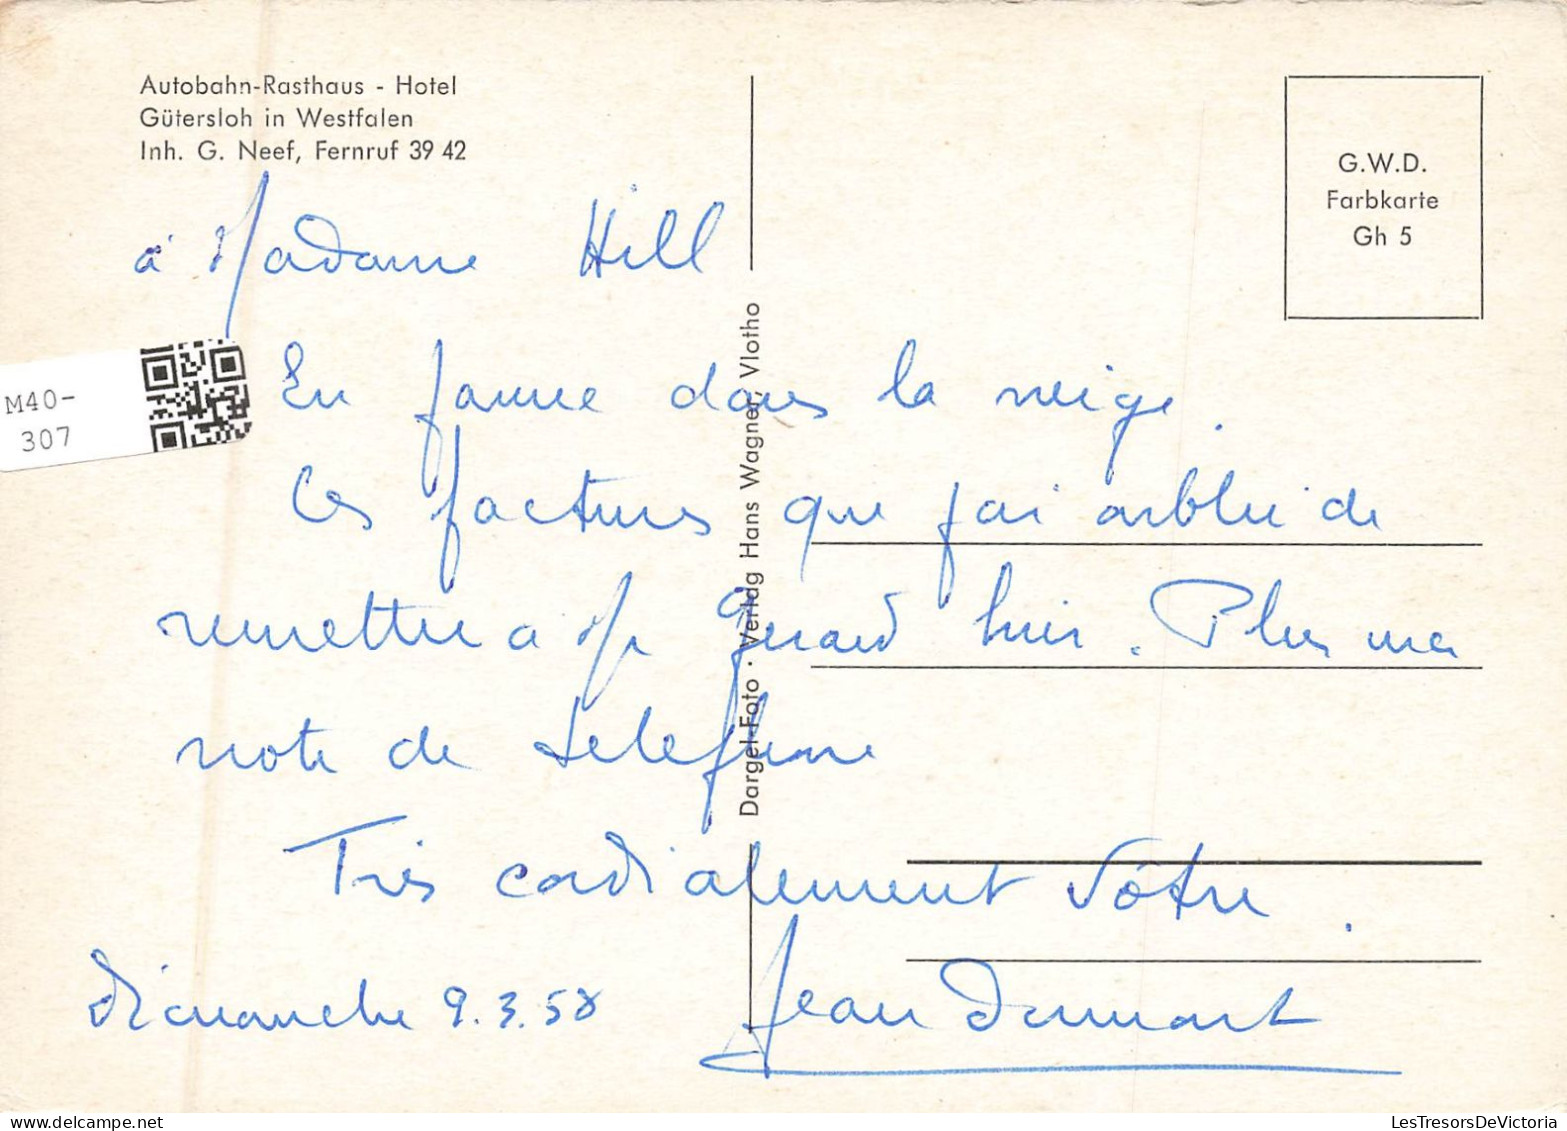 Autobahn-Rasthaus - Hotel
Gütersloh in Westfalen
Inh. G. Neef, Fernruf 39 42
G.W.D.
Farbkarte
Gh 5
à Madame Hill
M40-
307
En panne dans la neige.
Ces factures que j'ai oublié de
remettre a Mr Gérard hier. Plus ma
note de telefone
Très cordialement Vôtre.
dimanche 9.3.58 Jean Dumont
Dargel-Foto · Verlag Hans Wagner, Vlotho
LesTresorsDeVictoria